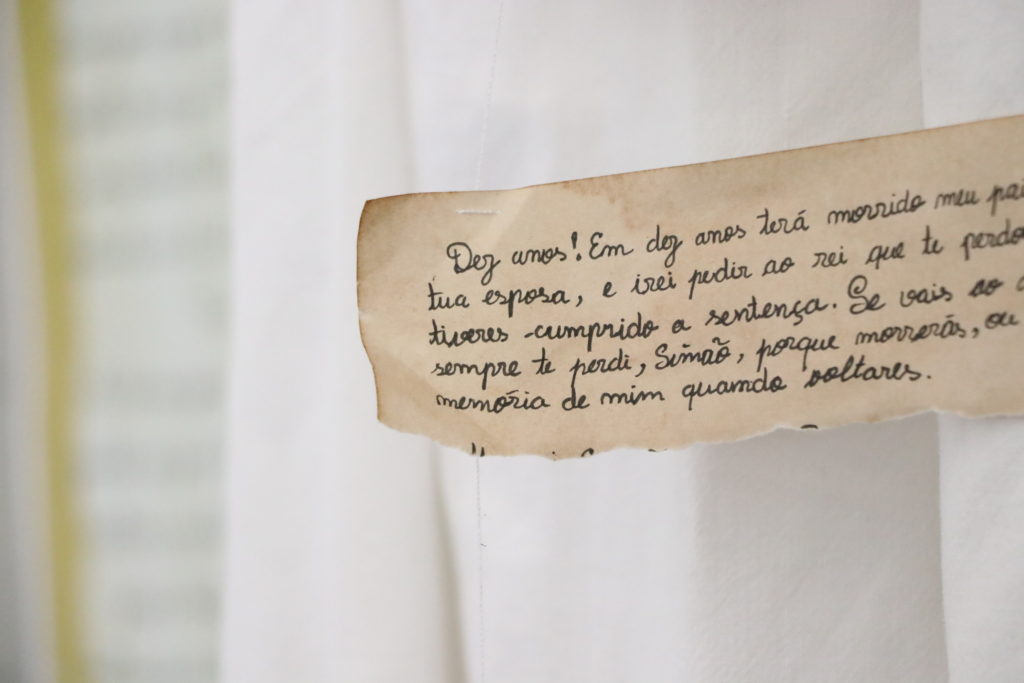 Dez anos! Em dez anos terá morrido meu pai
tua esposa, e irei pedir ao rei que te perdo
tiveres cumprido a sentença. Se vais ao
sempre te perdi, Simão, porque morrerás, ou
memória de mim quando voltares.